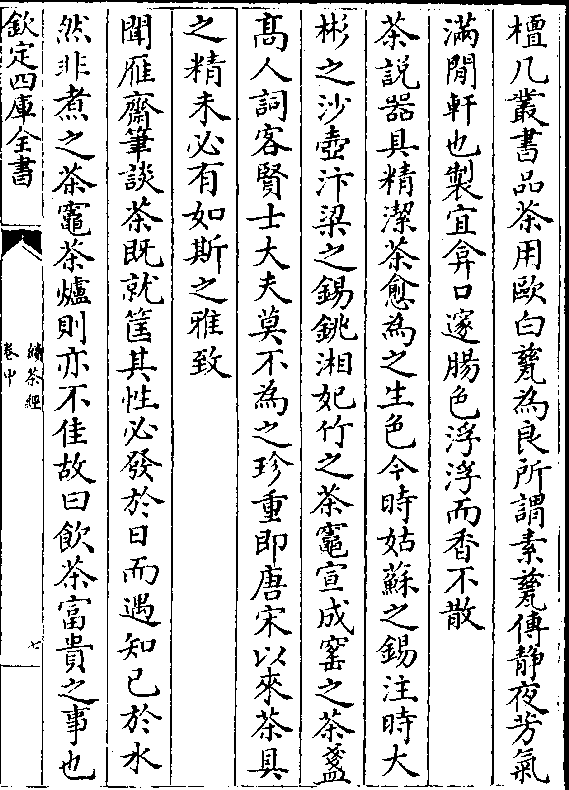 檀几叢書品茶用歐白甆為良所謂素甆傳靜夜芳氣
滿閒軒也製宜弇口邃腸色浮浮而香不散
茶説器具精潔茶愈為之生色今時姑蘇之錫注時大
彬之沙壺汴梁之錫銚湘妃竹之茶竈宣成窑之茶盞
髙人詞客賢士大夫莫不為之珍重即唐宋以來茶具
之精未必有如斯之雅致
聞雁齋筆談茶既就筐其性必發於日而遇知已於水
然非煮之茶竈茶爐則亦不佳故曰飲茶富貴之事也
欽定四庫全書
續茶經
卷中
七